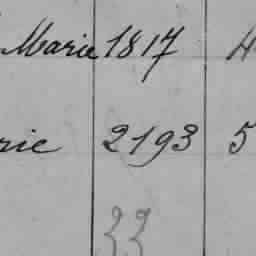 Marie 1817 4
rie 2193 5
33